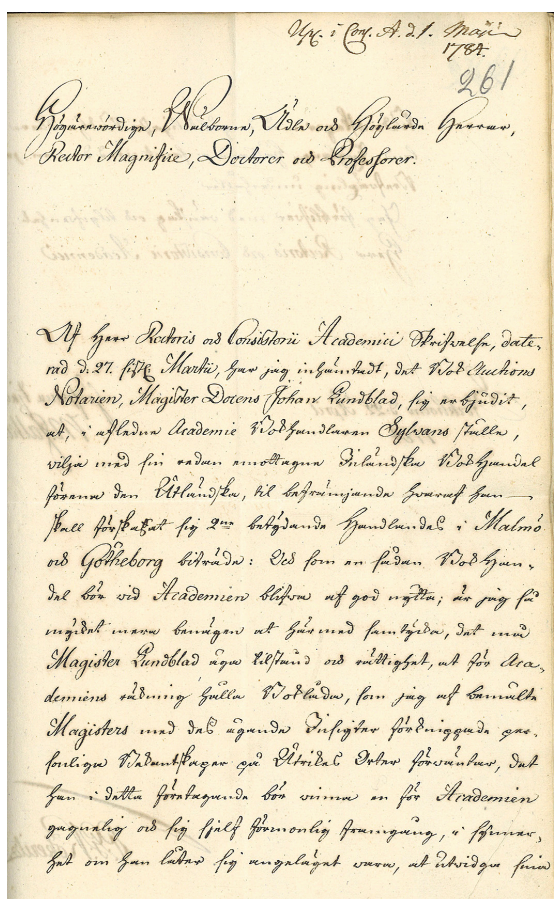 Upl. i Cons. A. d. 1. Maji
1784.
261
Högärewördige, Wälborne, Ädle och Höglärde Herrar,
Rector Magnifice, Doctorer och Professorer.
Af Herr Rectoris och Consistorii Academici Skrifwelse, date-
rad d. 27. sistl. Martii, har jag inhämtadt, det Bok Auctions
Notarien, Magister Docens Johan Lundblad, sig erbjudit,
at, i afledne Academie Bokhandlaren Sylvans ställe,
wilja med sin redan emottagne Inländska Bok Handel
förena den Utländska, til befrämjande hwaraf han
skall förskaffat sig 2ne betydande Handlandes i Malmö
och Götheborg biträde: Och som en sådan Bok Han-
del bör wid Academien blifwa af god nytta; är jag så
mycket mera benägen at härmed samtycka, det må
Magister Lundblad äga tilstånd och rättighet, at för Aca-
demiens räkning hålla Boklåda, som jag af bemälte
Magisters med des ägande Insigter förknippade per-
sonliga Bekantskaper på Utrikes Orter förwäntar, det
han i detta företagande bör winna en för Academien
gagnelig och sig sjelf förmonlig framgång, i synner-
het om han låter sig angeläget wara, at utwidga sina